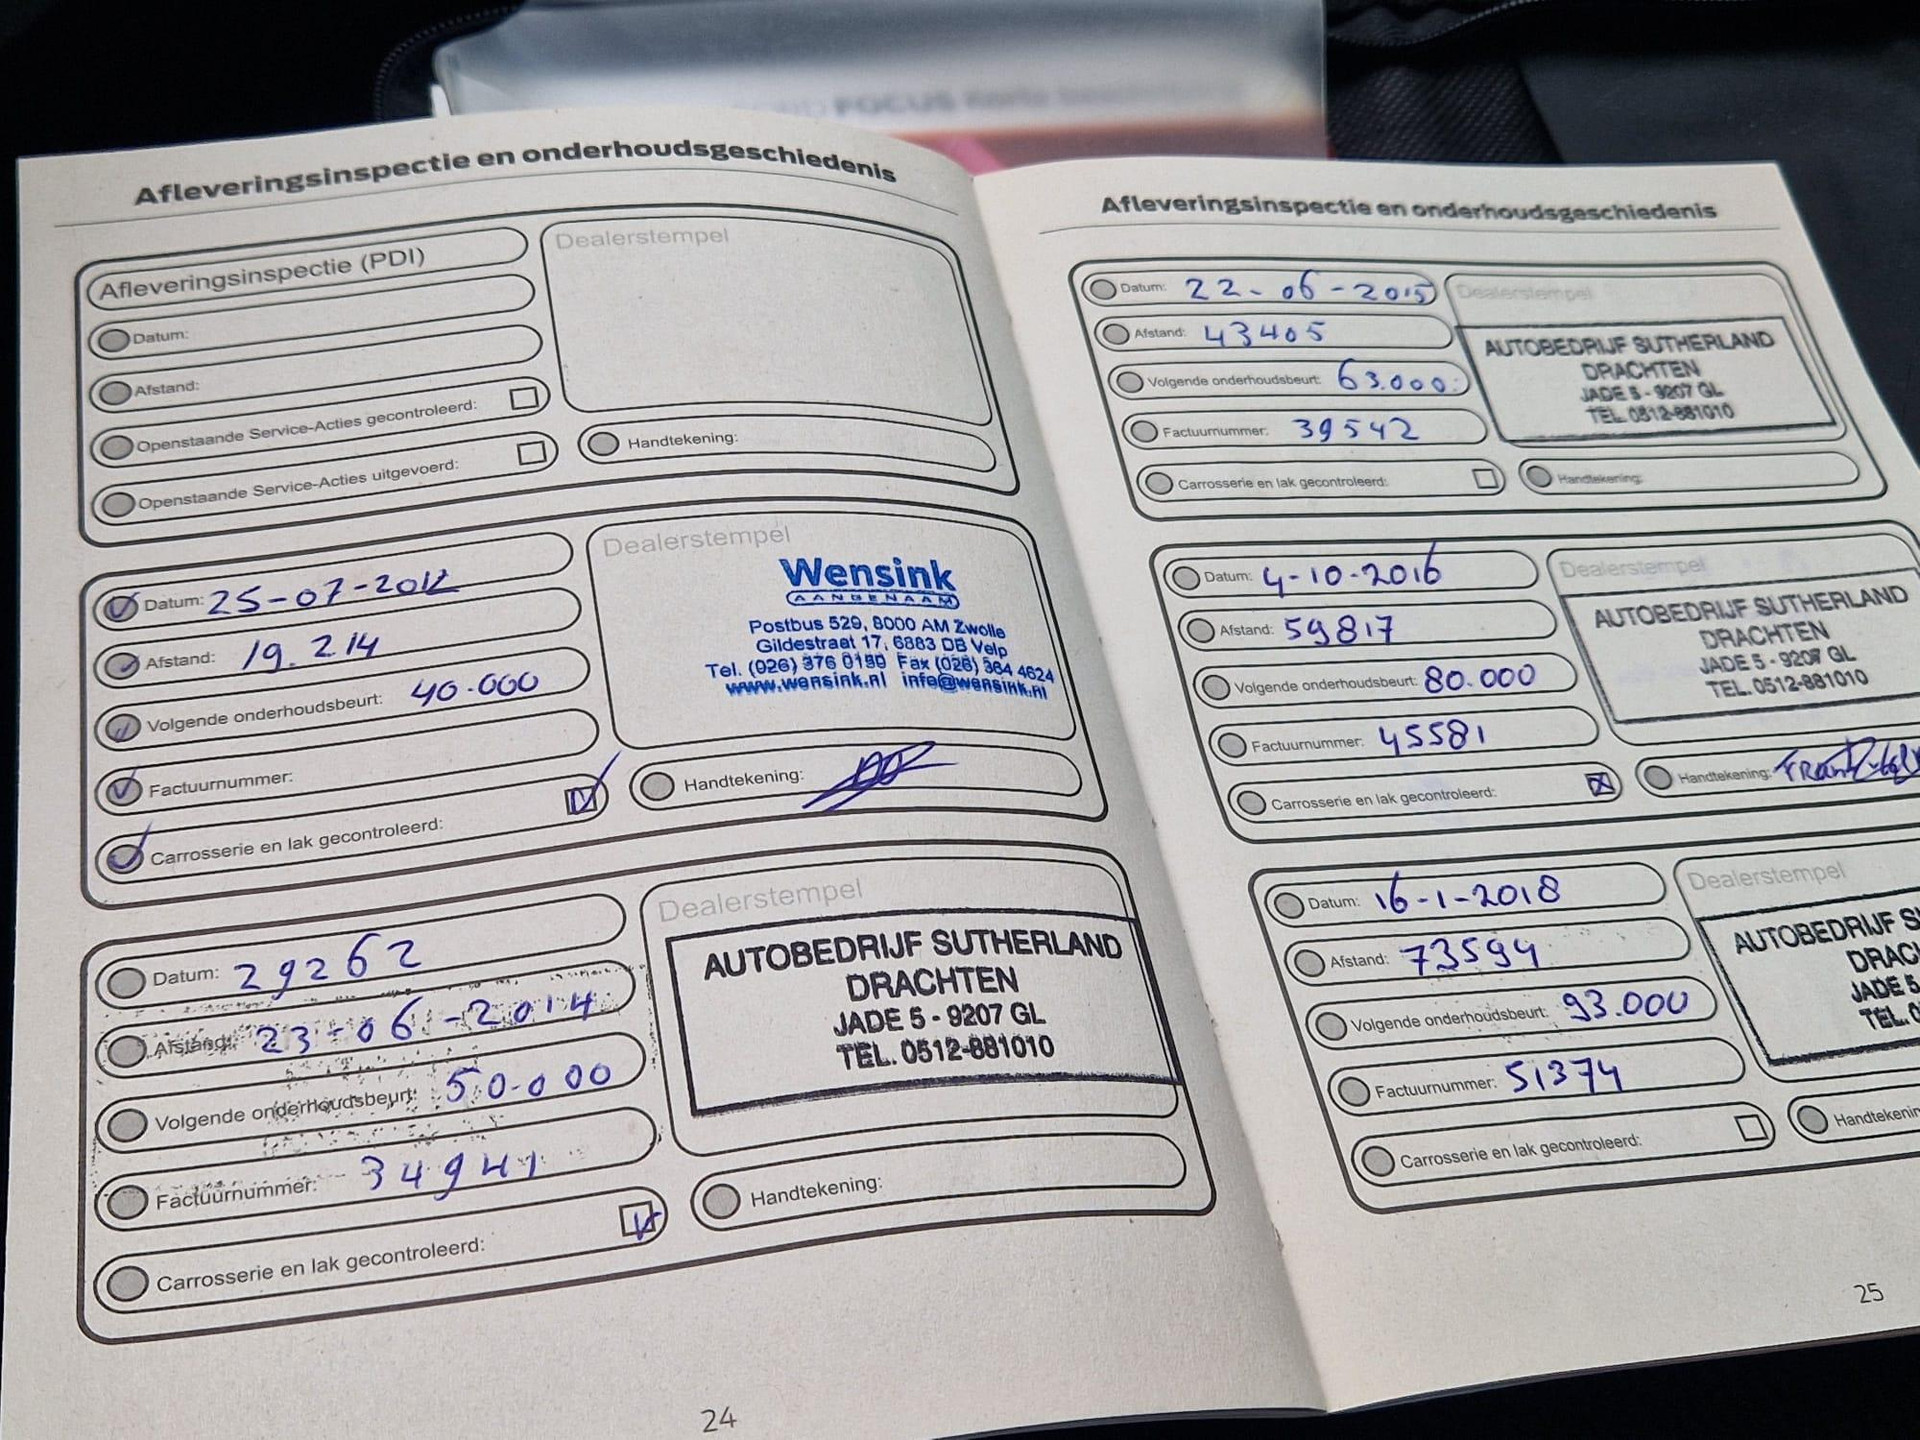 FOCUS Korte
Afleveringsinspectie en onderhoudsgeschiedenis
Afleveringsinspectie (PDI)
Datum:
Afstand:
Openstaande Service-Acties gecontroleerd:
Openstaande Service-Acties uitgevoerd:
Dealerstempel
Handtekening:
Datum: 25-07-2012
Afstand: 19.214
Volgende onderhoudsbeurt: 40.000
Factuurnummer:
Carrosserie en lak gecontroleerd:
Dealerstempel
Wensink
AANGENAAM
Postbus 529, 8000 AM Zwolle
Gildestraat 17, 6883 DB Velp
Tel. (026) 376 0190 Fax (026) 364 4624
www.wensink.nl info@wensink.nl
Handtekening:
Datum: 29262
Afstand: 23-06-2014
Volgende onderhoudsbeurt: 50.000
Factuurnummer: 34941
Carrosserie en lak gecontroleerd:
Dealerstempel
AUTOBEDRIJF SUTHERLAND
DRACHTEN
JADE 5 - 9207 GL
TEL. 0512-881010
Handtekening:
24
Afleveringsinspectie en onderhoudsgeschiedenis
Datum: 22-06-2015
Afstand: 43405
Volgende onderhoudsbeurt: 63.000
Factuurnummer: 39542
Carrosserie en lak gecontroleerd:
Dealerstempel
AUTOBEDRIJF SUTHERLAND
DRACHTEN
JADE 5 - 9207 GL
TEL. 0512-881010
Handtekening:
Datum: 4-10-2016
Afstand: 59817
Volgende onderhoudsbeurt: 80.000
Factuurnummer: 45581
Carrosserie en lak gecontroleerd:
Dealerstempel
AUTOBEDRIJF SUTHERLAND
DRACHTEN
JADE 5 - 9207 GL
TEL. 0512-881010
Handtekening:
Datum: 16-1-2018
Afstand: 73594
Volgende onderhoudsbeurt: 93.000
Factuurnummer: 51374
Carrosserie en lak gecontroleerd:
Dealerstempel
AUTOBEDRIJF S
DRAC
JADE 5
TEL. 0
Handtekenin
25